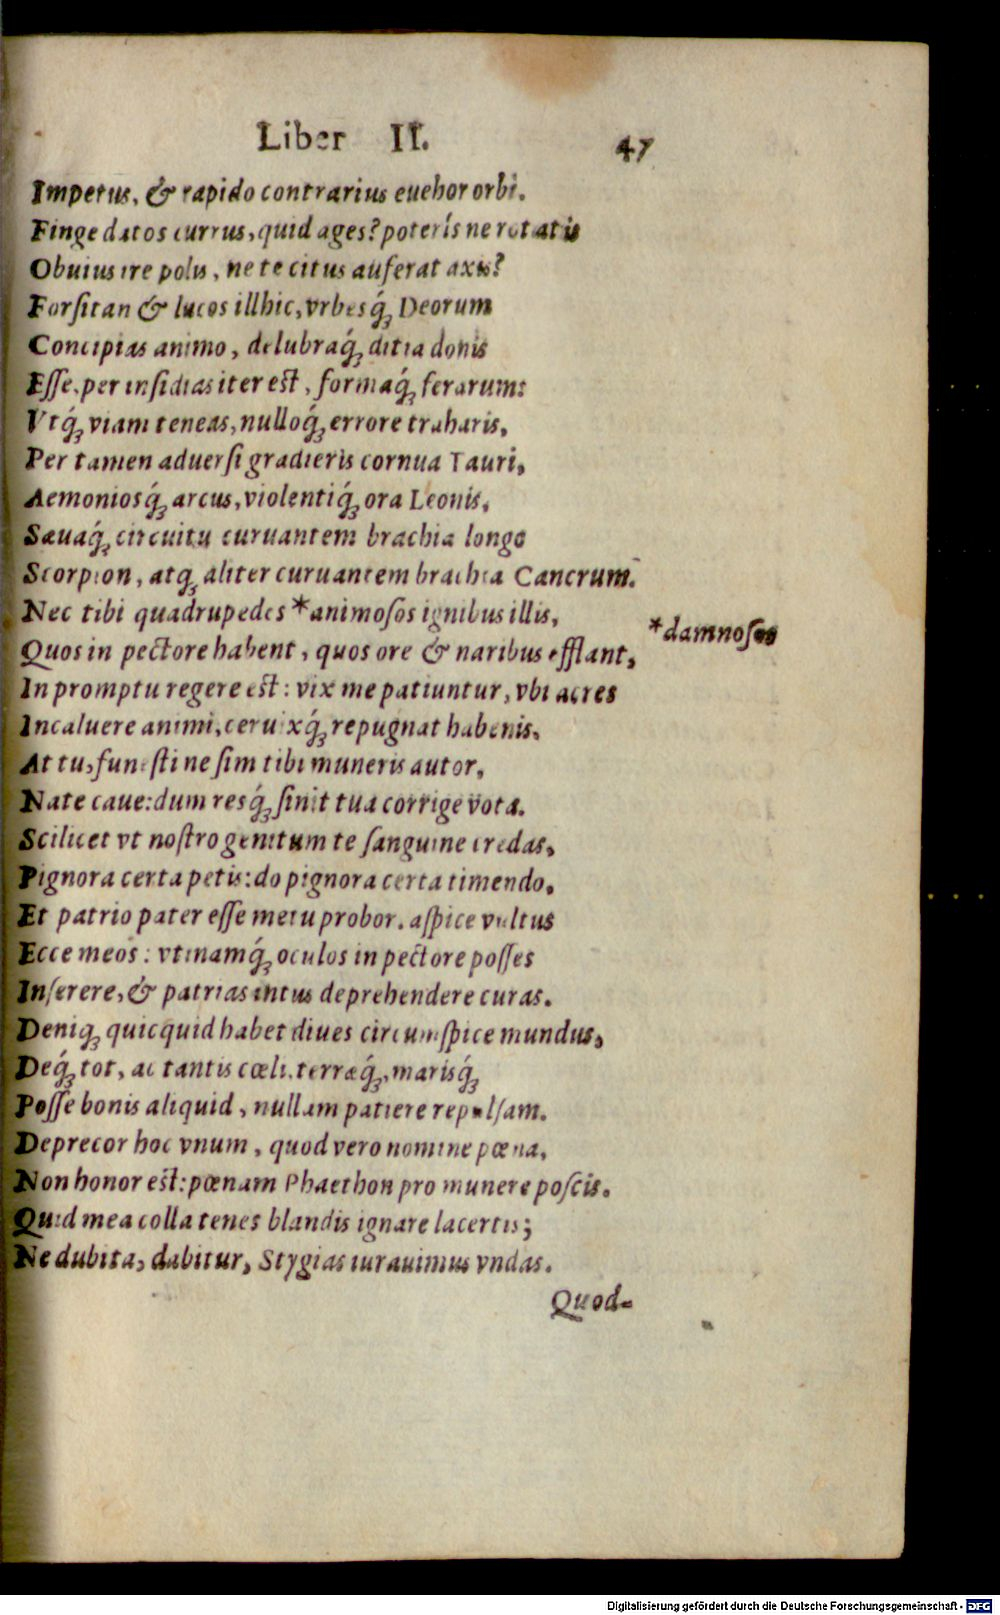 Liber II. 47
Impetus, & rapido contrarius euehor orbi.
Finge datos currus, quid ages? poterís ne rotatis
Obuius ire polis, ne te citus auferat axis?
Forſitan & lucos illhic, vrbesq́ꝫ Deorum
Concipias animo, delubraq́ꝫ ditia donis
Eſſe. per inſidias iter est, formaq́ꝫ ferarum:
Vtq́ꝫ viam teneas, nulloq́ꝫ errore traharis,
Per tamen aduerſi gradieris cornua Tauri,
Aemoniosq́ꝫ arcus, violentiq́ꝫ ora Leonis,
Sæuaq́ꝫ circuitu curuantem brachia longo
Scorpion, atqꝫ aliter curuantem brachia Cancrum.
Nec tibi quadrupedes *animoſos ignibus illis,
*damnoſos
Quos in pectore habent, quos ore & naribus efflant,
In promptu regere est: vix me patiuntur, vbi acres
Incaluere animi, ceruixq́ꝫ repugnat habenis.
At tu, funesti ne ſim tibi muneris autor,
Nate caue: dum resq́ꝫ ſinit tua corrige vota.
Scilicet vt noſtro genitum te ſanguine credas,
Pignora certa petis: do pignora certa timendo,
Et patrio pater eſſe metu probor. aſpice vultus
Ecce meos: vtinamq́ꝫ oculos in pectore poſſes
Inſerere, & patrias intus deprehendere curas.
Deniqꝫ quicquid habet diues circumſpice mundus,
Deq́ꝫ tot, ac tantis cœli, terræq́ꝫ, marisq́ꝫ
Poſſe bonis aliquid, nullam patiere repulſam.
Deprecor hoc vnum, quod vero nomine pœna,
Non honor est: pœnam Phaethon pro munere poſcis.
Quid mea colla tenes blandis ignare lacertis;
Ne dubita, dabitur, Stygias iurauimus vndas.
Quod-
Digitalisierung gefördert durch die Deutsche Forschungsgemeinschaft - DFG